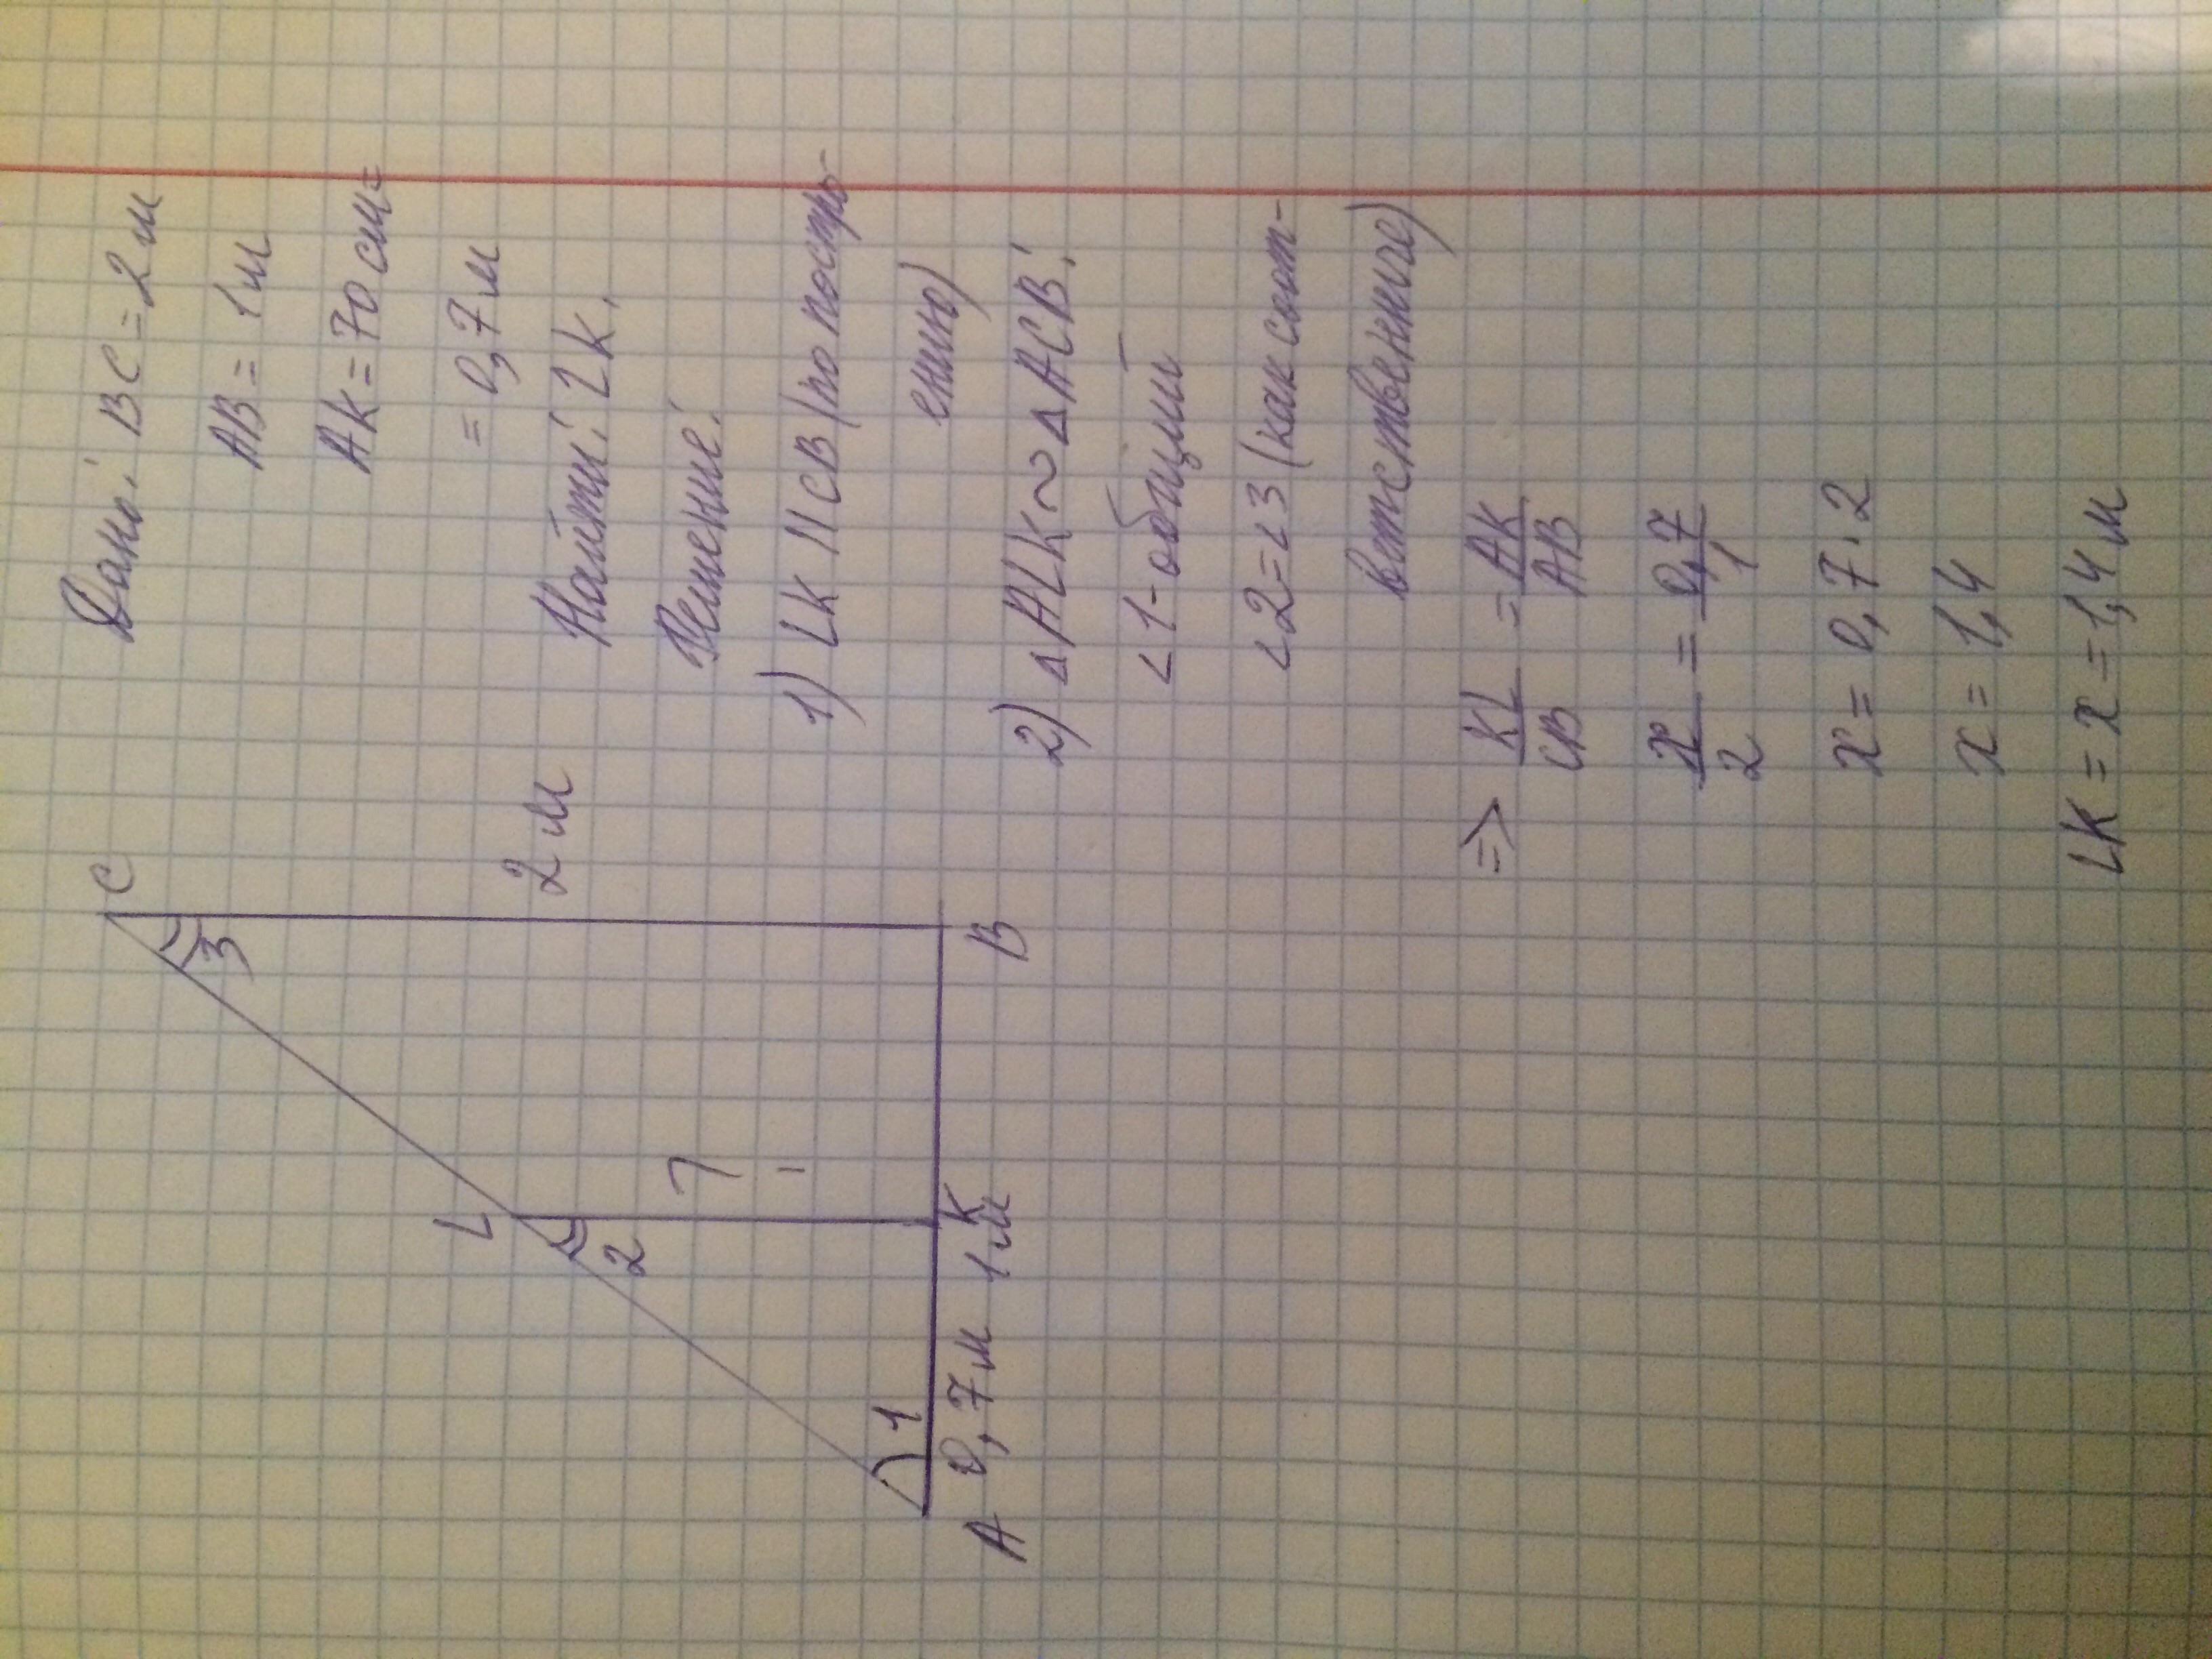 C
3
2 м
L
2
?
1
A
0,7м
1м
K
B
Дано: BC = 2 м
AB = 1м
AK = 70 см =
= 0,7м
Найти: LK.
Решение:
1) LK || CB (по постро-
ению)
2) △ALK ~ △ACB:
∠1 - общий
∠2 = ∠3 (как соот-
ветственные)
=> KL/CB = AK/AB
x/2 = 0,7/1
x = 0,7 · 2
x = 1,4
LK = x = 1,4 м